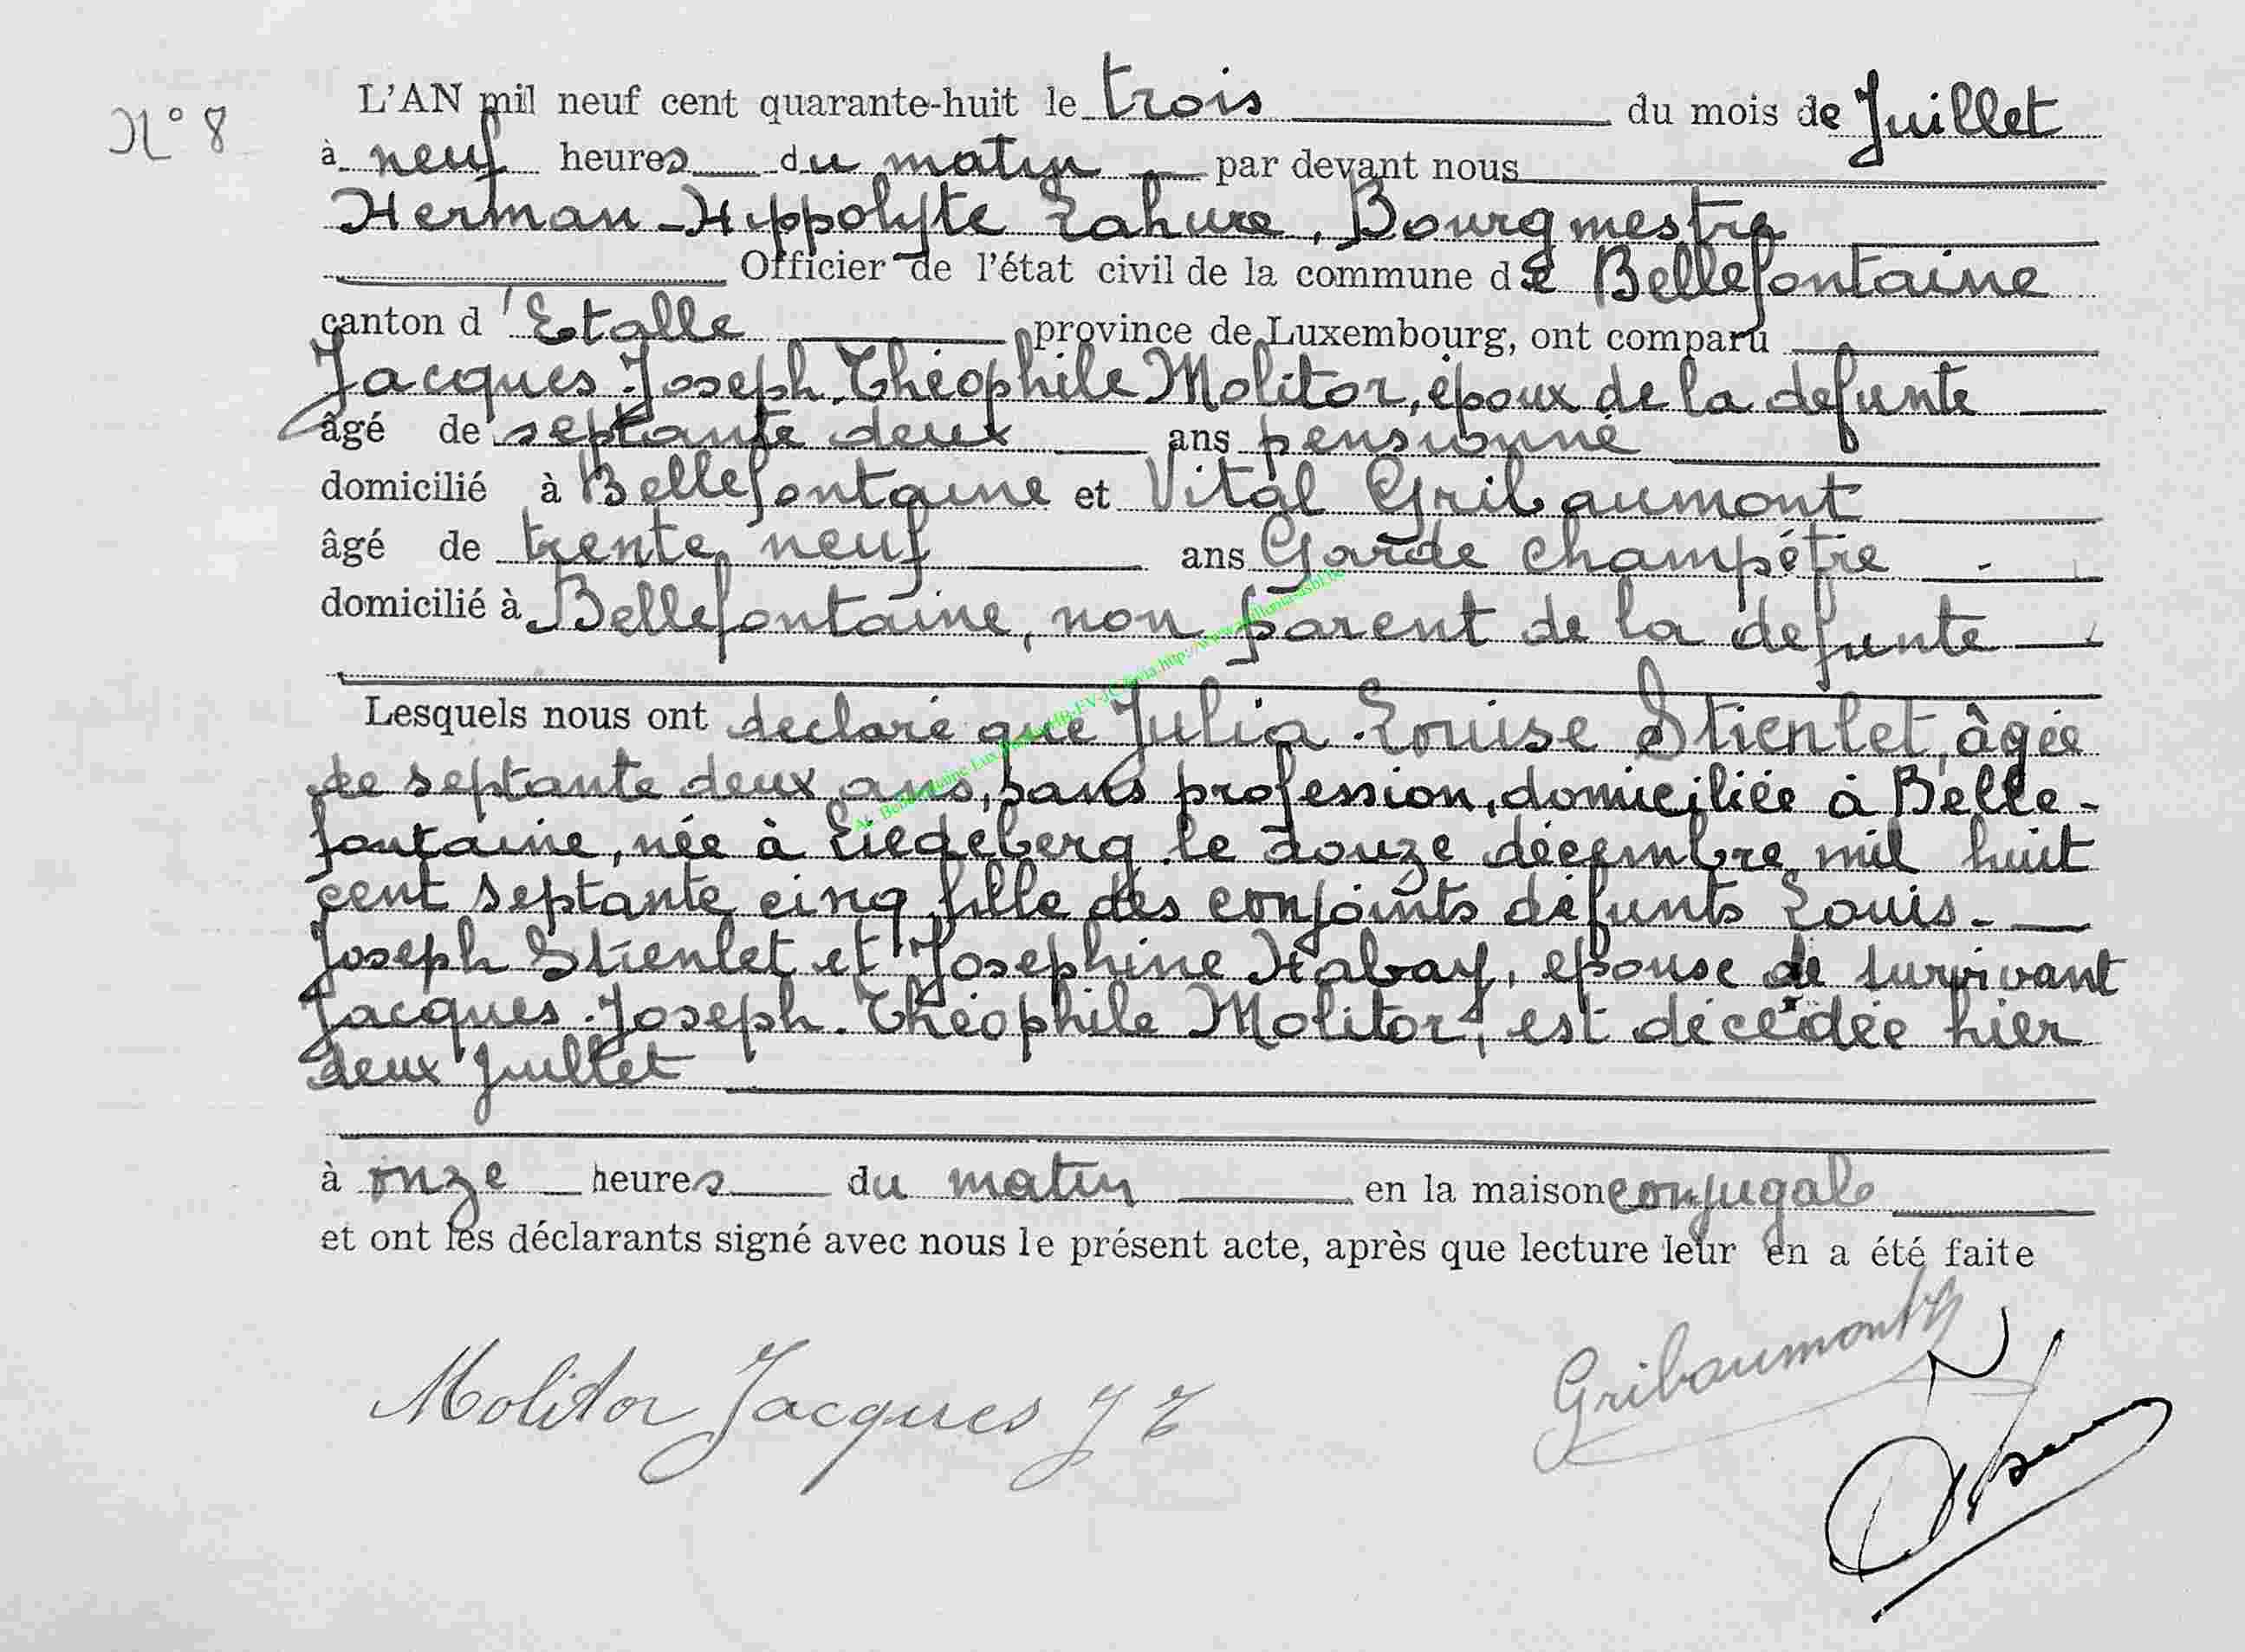 N° 8
L'AN mil neuf cent quarante-huit le trois du mois de Juillet
à neuf heures du matin par devant nous
Herman-Hippolyte Lahure, Bourgmestre
Officier de l'état civil de la commune de Bellefontaine
canton d'Etalle province de Luxembourg, ont comparu
Jacques-Joseph-Théophile Molitor, époux de la defunte
âgé de septante deux ans pensionné
domicilié à Bellefontaine et Vital Gribaumont
âgé de trente neuf ans Garde champêtre -
domicilié à Bellefontaine, non parent de la defunte
Lesquels nous ont declaré que Julia-Louise Stienlet, âgée
de septante deux ans, sans profession, domiciliée à Belle-
fontaine, née à Ledeberg le douze décembre mil huit
cent septante cinq, fille des conjoints défunts Louis-
Joseph Stienlet et Josephine Habay, epouse de survivant
Jacques-Joseph-Théophile Molitor, est décédée hier
deux Juillet
à onze heures du matin en la maison conjugale
et ont les déclarants signé avec nous le présent acte, après que lecture leur en a été faite
Molitor Jacques J T
Gribaumont